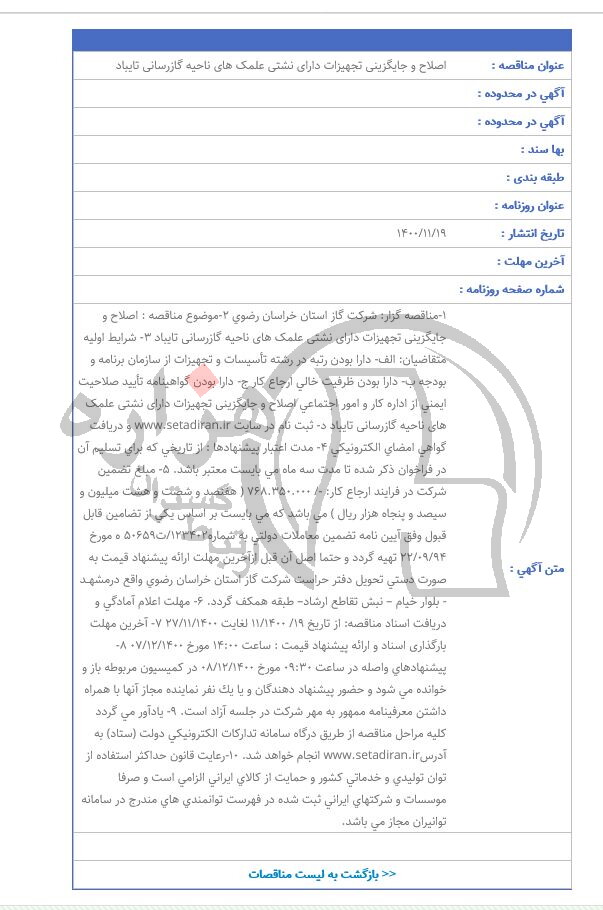 عنوان مناقصه : اصلاح و جایگزینی تجهیزات دارای نشتی علمک های ناحیه گازرسانی تایباد
آگهي در محدوده :
آگهي در محدوده :
بها سند :
طبقه بندی :
عنوان روزنامه :
تاریخ انتشار : ۱۴۰۰/۱۱/۱۹
آخرین مهلت :
شماره صفحه روزنامه :
۱-مناقصه گزار: شرکت گاز استان خراسان رضوي ۲-موضوع مناقصه : اصلاح و
جایگزینی تجهیزات دارای نشتی علمک های ناحیه گازرسانی تایباد ۳- شرایط اولیه
متقاضیان: الف- دارا بودن رتبه در رشته تأسیسات و تجهیزات از سازمان برنامه و
بودجه ب- دارا بودن ظرفیت خالي ارجاع کار ج- دارا بودن گواهینامه تأیید صلاحیت
ایمني از اداره کار و امور اجتماعي اصلاح و جایگزینی تجهیزات دارای نشتی علمک
های ناحیه گازرسانی تایباد د- ثبت نام در سایت www.setadiran.ir و دریافت
گواهي امضاي الکترونیکي ۴- مدت اعتبار پیشنهادها : از تاریخي که براي تسلیم آن
در فراخوان ذکر شده تا مدت سه ماه مي بایست معتبر باشد. ۵- مبلغ تضمین
شرکت در فرایند ارجاع کار: -/ ۷۶۸.۳۵۰.۰۰۰ ( هفتصد و شصت و هشت میلیون و
سیصد و پنجاه هزار ریال ) مي باشد که مي بایست بر اساس یکي از تضامین قابل
قبول وفق آیین نامه تضمین معاملات دولتي به شماره۱۲۳۴۰۲/ت۵۰۶۵۹ ه مورخ
۲۲/۰۹/۹۴ تهیه گردد و حتما اصل آن قبل ازآخرین مهلت ارائه پیشنهاد قیمت به
صورت دستي تحویل دفتر حراست شرکت گاز استان خراسان رضوي واقع درمشهد
- بلوار خیام – نبش تقاطع ارشاد– طبقه همکف گردد. ۶- مهلت اعلام آمادگي و
متن آگهي :
دریافت اسناد مناقصه: از تاریخ ۱۹/ ۱۱/۱۴۰۰ لغایت ۲۷/۱۱/۱۴۰۰ ۷- آخرین مهلت
بارگذاری اسناد و ارائه پیشنهاد قیمت : ساعت ۱۴:۰۰ مورخ ۰۷/۱۲/۱۴۰۰ ۸-
پیشنهادهاي واصله در ساعت ۰۹:۳۰ مورخ ۰۸/۱۲/۱۴۰۰ در کمیسیون مربوطه باز و
خوانده مي شود و حضور پیشنهاد دهندگان و یا یك نفر نماینده مجاز آنها با همراه
داشتن معرفینامه ممهور به مهر شرکت در جلسه آزاد است. ۹- یادآور مي گردد
کلیه مراحل مناقصه از طریق درگاه سامانه تدارکات الکترونیکي دولت (ستاد) به
آدرسwww.setadiran.ir انجام خواهد شد. ۱۰-رعایت قانون حداکثر استفاده از
توان تولیدي و خدماتي کشور و حمایت از کالاي ایراني الزامي است و صرفا
موسسات و شرکتهاي ایراني ثبت شده در فهرست توانمندي هاي مندرج در سامانه
توانیران مجاز مي باشد.
<< بازگشت به لیست مناقصات